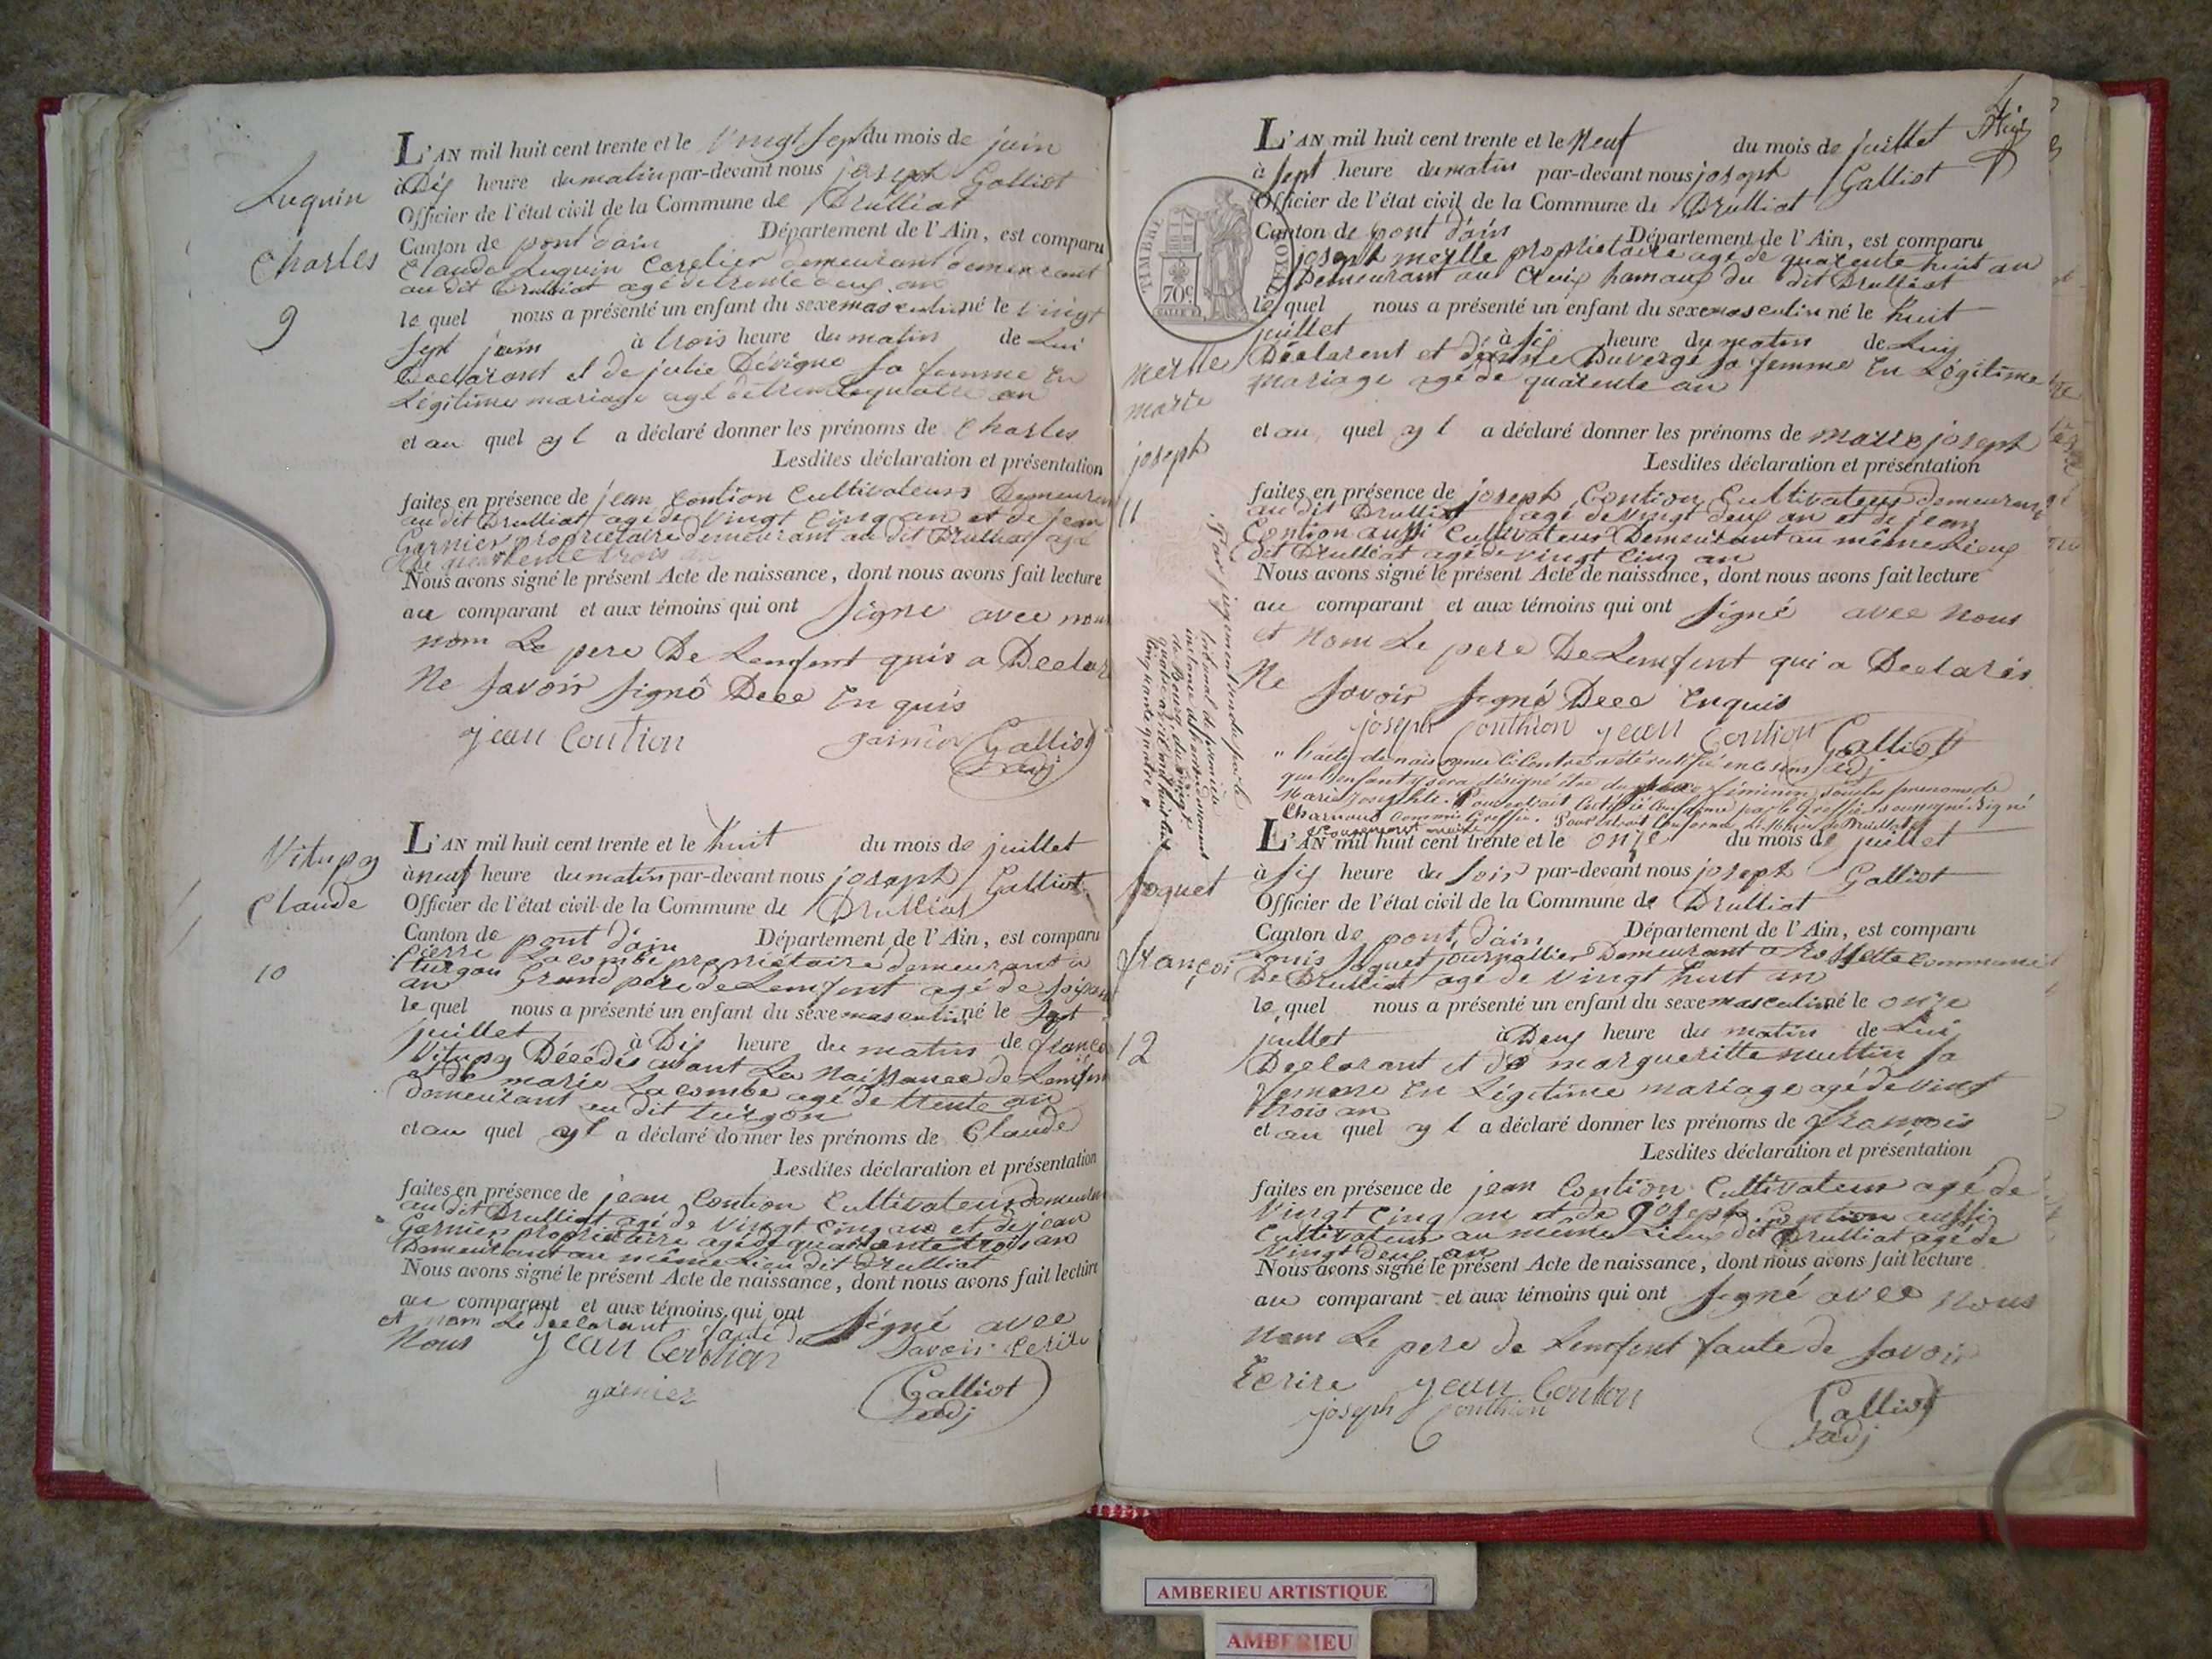 Luquin
Charles
9
L'AN mil huit cent trente et le vingt Sept du mois de juin
à Dix heure du matin par-devant nous joseph Galliot
Officier de l'état civil de la Commune de Drulliat
Canton de pont d'ain Département de l'Ain, est comparu
Claude Luquin Cerclier demeurant demeurant
au dit Drulliat agé de trente deux an
le quel nous a présenté un enfant du sexe masculin né le vingt
Sept juin à trois heure du matin de Lui
Declarant et de julie Dévigne Sa femme En
Légitime mariage agé de trente quatre an
et au quel yl a déclaré donner les prénoms de Charles
Lesdites déclaration et présentation
faites en présence de jean Contion Cultivateurs Demeuren
au dit Drulliat agé de vingt Cinq an et de jean
Garnier propriétaire demeurant au dit Drulliat agé
de quarente trois an
Nous avons signé le présent Acte de naissance, dont nous avons fait lecture
au comparant et aux témoins qui ont Signe avec nous
nom Le pere De Lemfent quis a Declar
Ne Savoir Signé Dece En quis
jean Contion garnier Galliot
adj
Vitupy
Claude
10
L'AN mil huit cent trente et le huit du mois de juillet
à neuf heure du matin par-devant nous joseph Galliot
Officier de l'état civil de la Commune de Drulliat
Canton de pont d'ain Département de l'Ain, est comparu
pierre Lacombe propriétaire demeurant a
turgon Grand pere de Lemfent agé de Soixan
an
le quel nous a présenté un enfant du sexe masculin né le Sept
juillet à Dix heure du matin de françoi
Vitupy Décédés avant La Naissance de Lemfen
et de marie Lacombe agé de trente an
demeurant au dit turgon
et au quel yl a déclaré donner les prénoms de Claude
Lesdites déclaration et présentation
faites en présence de jean Contion Cultivateur demeuren
au dit Drulliat agé de vingt Cinq an et de jean
Garnier propriétaire agé de quarante trois an
Demeurant au même Lieu dit Drulliat
Nous avons signé le présent Acte de naissance, dont nous avons fait lecture
au comparant et aux témoins qui ont Signé avec
et nom Le declarant faute de Savoir Ecrire
Nous jean Contion
garnier Galliot
adj
L'AN mil huit cent trente et le Neuf du mois de juillet
à Sept heure du matin par-devant nous joseph Galliot
Officier de l'état civil de la Commune de Drulliat
Canton de pont d'ain Département de l'Ain, est comparu
TIMBRE ROYAL
70c
joseph merlle propriétaire agé de quarente huit an
Demeurant au Cruix hamaux du dit Drulliat
le quel nous a présenté un enfant du sexe masculin né le huit
juillet à Six heure du matin de Lui
Déclarent et d'anne Duvergé Sa femme En Légitime
mariage agé de quarente an
merlle
marie
joseph
11
et au quel yl a déclaré donner les prénoms de marie joseph
Lesdites déclaration et présentation
faites en présence de joseph Contion Cultivateur demeurent
au dit Drulliat agé de vingt deux an et de jean
Contion aussi Cultivateur Demeurant au même Lieux
dit Drulliat agé de vingt Cinq an
Nous avons signé le présent Acte de naissance, dont nous avons fait lecture
au comparant et aux témoins qui ont Signé avec Nous
et Nom Le pere De Lemfent qui a Declarés
Ne Savoir Signé Dece Enquis
joseph Conthion jean Contion Galliot
adj
Par jugement rendu par le
tribunal de première
instance de l'arrondissement
de Bourg du vingt
quatre avril mil huit cent
cinquante quatre,
"l'acte de naissance ci contre a été rectifié en ce sens
que l'enfant y sera désigné être du sexe féminin sous les prénoms de
Marie Josephte. Pour extrait certifié conforme par le Greffier soussigné Signé
Charnaud Commis Greffier. Pour extrait conforme Le Maire de Druillat
Soquet
françoi
12
L'AN mil huit cent trente et le onze du mois de juillet
à Six heure du Soir par-devant nous joseph Galliot
Officier de l'état civil de la Commune de Drulliat
Canton de pont d'ain Département de l'Ain, est comparu
Louis Soquet journallier Demeurant a Rossette Commune
De Drulliat agé de vingt huit an
le quel nous a présenté un enfant du sexe masculin né le onze
juillet à Deux heure du matin de Lui
Declarant et de margueritte muttin Sa
femme En Légitime mariage agé de vint
trois an
et au quel yl a déclaré donner les prénoms de françois
Lesdites déclaration et présentation
faites en présence de jean Contion Cultivateur agé de
vingt Cinq an et de joseph Contion aussi
Cultivateur au même Lieux dit Drulliat agé de
vingt deux an
Nous avons signé le présent Acte de naissance, dont nous avons fait lecture
au comparant et aux témoins qui ont Signé avec Nous
Nom Le pere de Lemfent faute de Savoir
Ecrire jean Contion
joseph Conthion Galliot
adj
AMBERIEU ARTISTIQUE
AMBERIEU